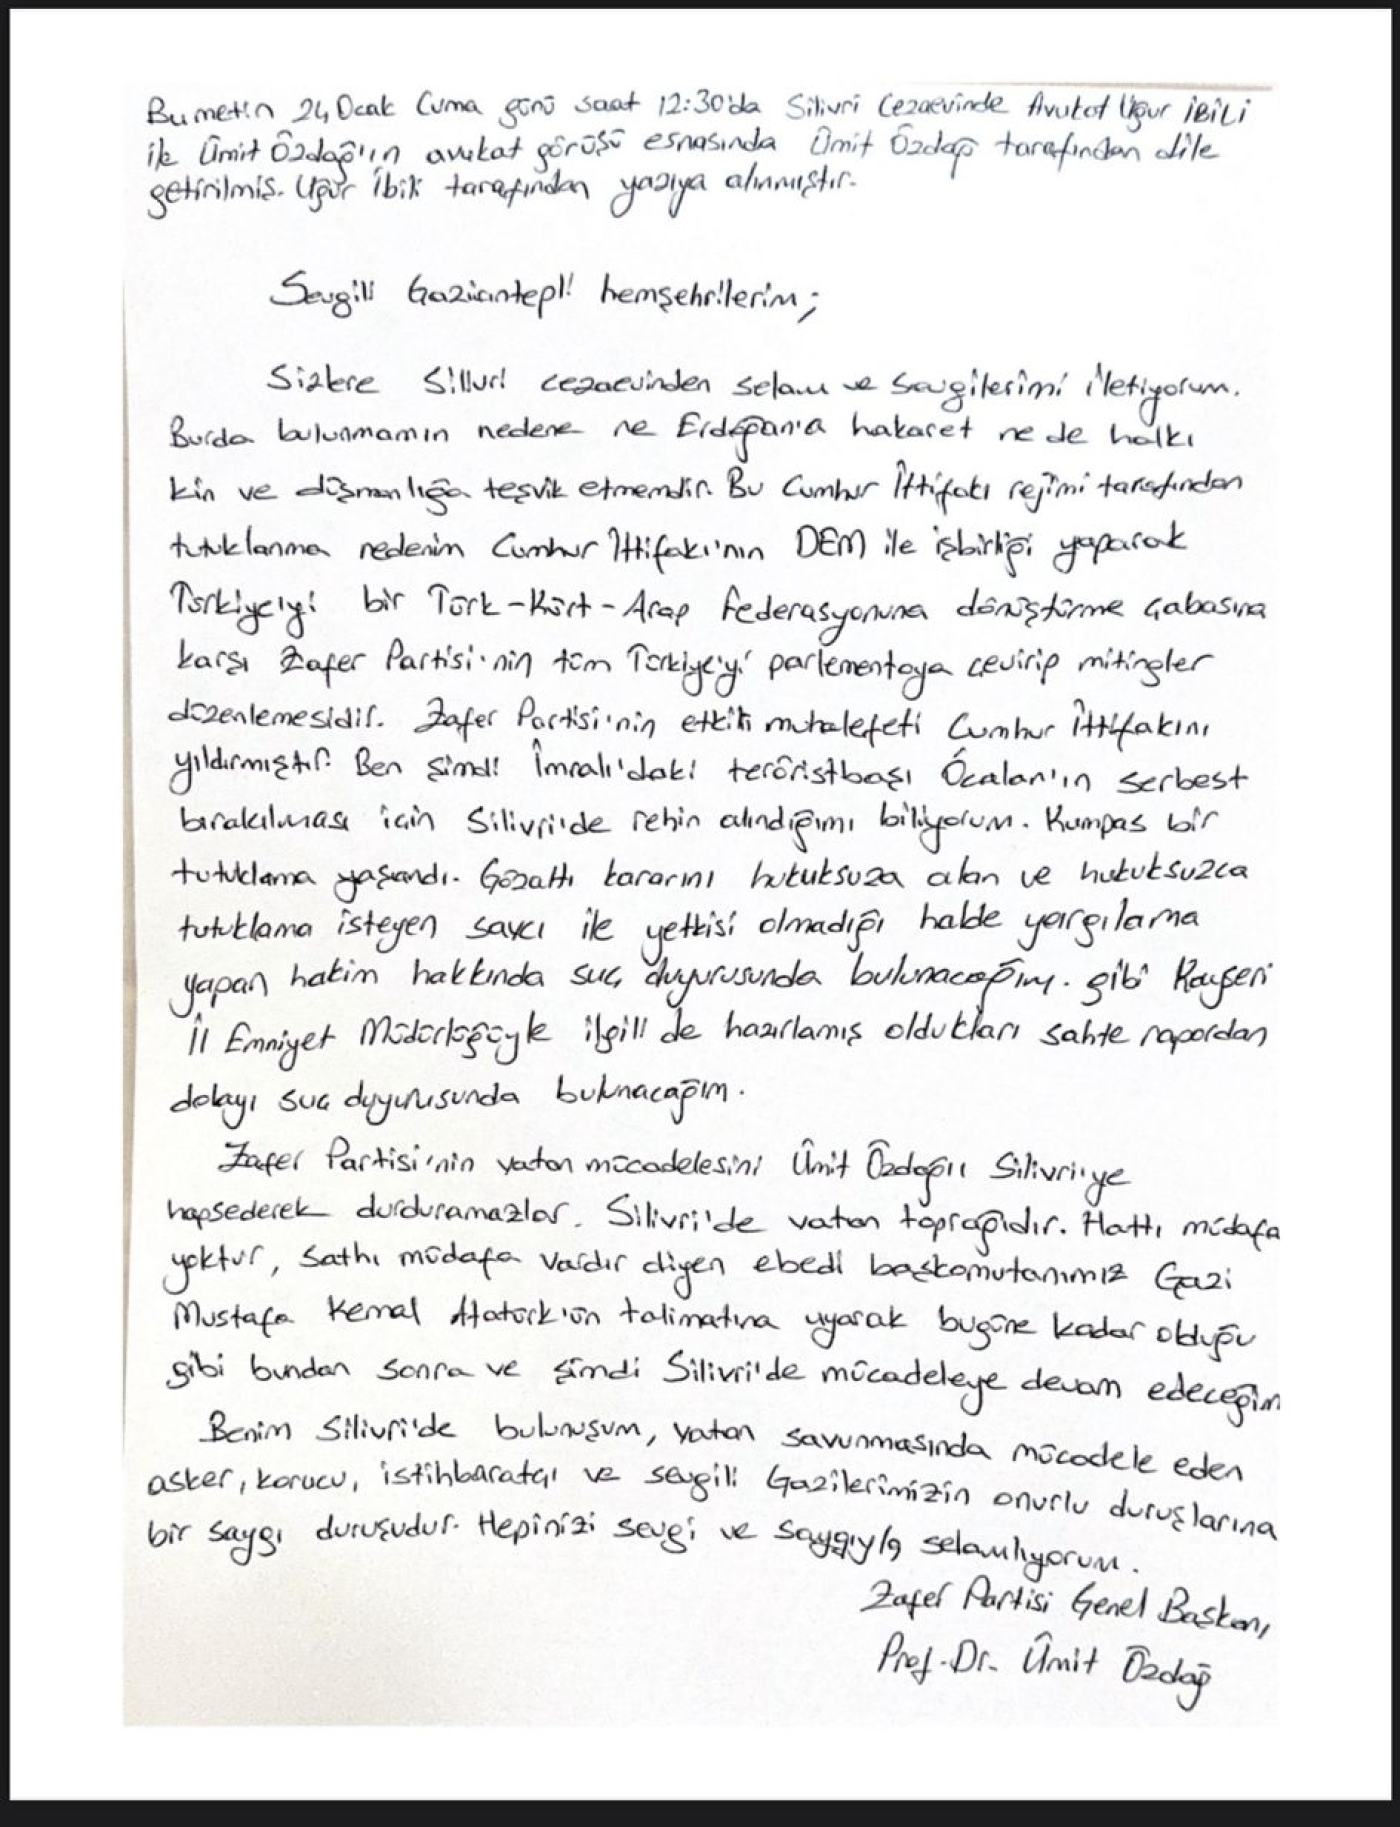 Bu metin 24 Ocak Cuma günü saat 12:30'da Silivri Cezaevinde Avukat Uğur İBİLİ
ile Ümit Özdağ'ın avukat görüşü esnasında Ümit Özdağ tarafından dile
getirilmiş. Uğur İbili tarafından yazıya alınmıştır.
Sevgili Gaziantepli hemşehrilerim;
Sizlere Silivri cezaevinden selam ve sevgilerimi iletiyorum.
Burda bulunmamın nedene ne Erdoğan'a hakaret ne de halkı
kin ve düşmanlığa teşvik etmemdir. Bu Cumhur İttifakı rejimi tarafından
tutuklanma nedenim Cumhur İttifakı'nın DEM ile işbirliği yaparak
Türkiye'yi bir Türk-Kürt-Arap Federasyonuna dönüştürme çabasına
karşı Zafer Partisi'nin tüm Türkiye'yi parlementoya çevirip mitingler
düzenlemesidir. Zafer Partisi'nin etkili muhalefeti Cumhur İttifakını
yıldırmıştır. Ben şimdi İmralı'daki teröristbaşı Öcalan'ın serbest
bırakılması için Silivri'de rehin alındığımı biliyorum. Kumpas bir
tutuklama yaşandı. Gözaltı kararını hukuksuza alan ve hukuksuzca
tutuklama isteyen savcı ile yetkisi olmadığı halde yargılama
yapan hakim hakkında suç duyurusunda bulunacağım. gibi Kayseri
İl Emniyet Müdürlüğüyle ilgili de hazırlamış oldukları sahte rapordan
dolayı suç duyurusunda bulunacağım.
Zafer Partisi'nin vatan mücadelesini Ümit Özdağ'ı Silivri'ye
hapsederek durduramazlar. Silivri'de vatan toprağıdır. Hattı müdafa
yoktur, sathı müdafa vardır diyen ebedi başkomutanımız Gazi
Mustafa Kemal Atatürk'ün talimatına uyarak bugüne kadar olduğu
gibi bundan sonra ve şimdi Silivri'de mücadeleye devam edeceğim
Benim Silivri'de bulunuşum, vatan savunmasında mücadele eden
asker, korucu, istihbaratçı ve sevgili Gazilerimizin onurlu duruşlarına
bir saygı duruşudur. Hepinizi sevgi ve saygıyla selamlıyorum.
Zafer Partisi Genel Başkanı
Prof. Dr. Ümit Özdağ